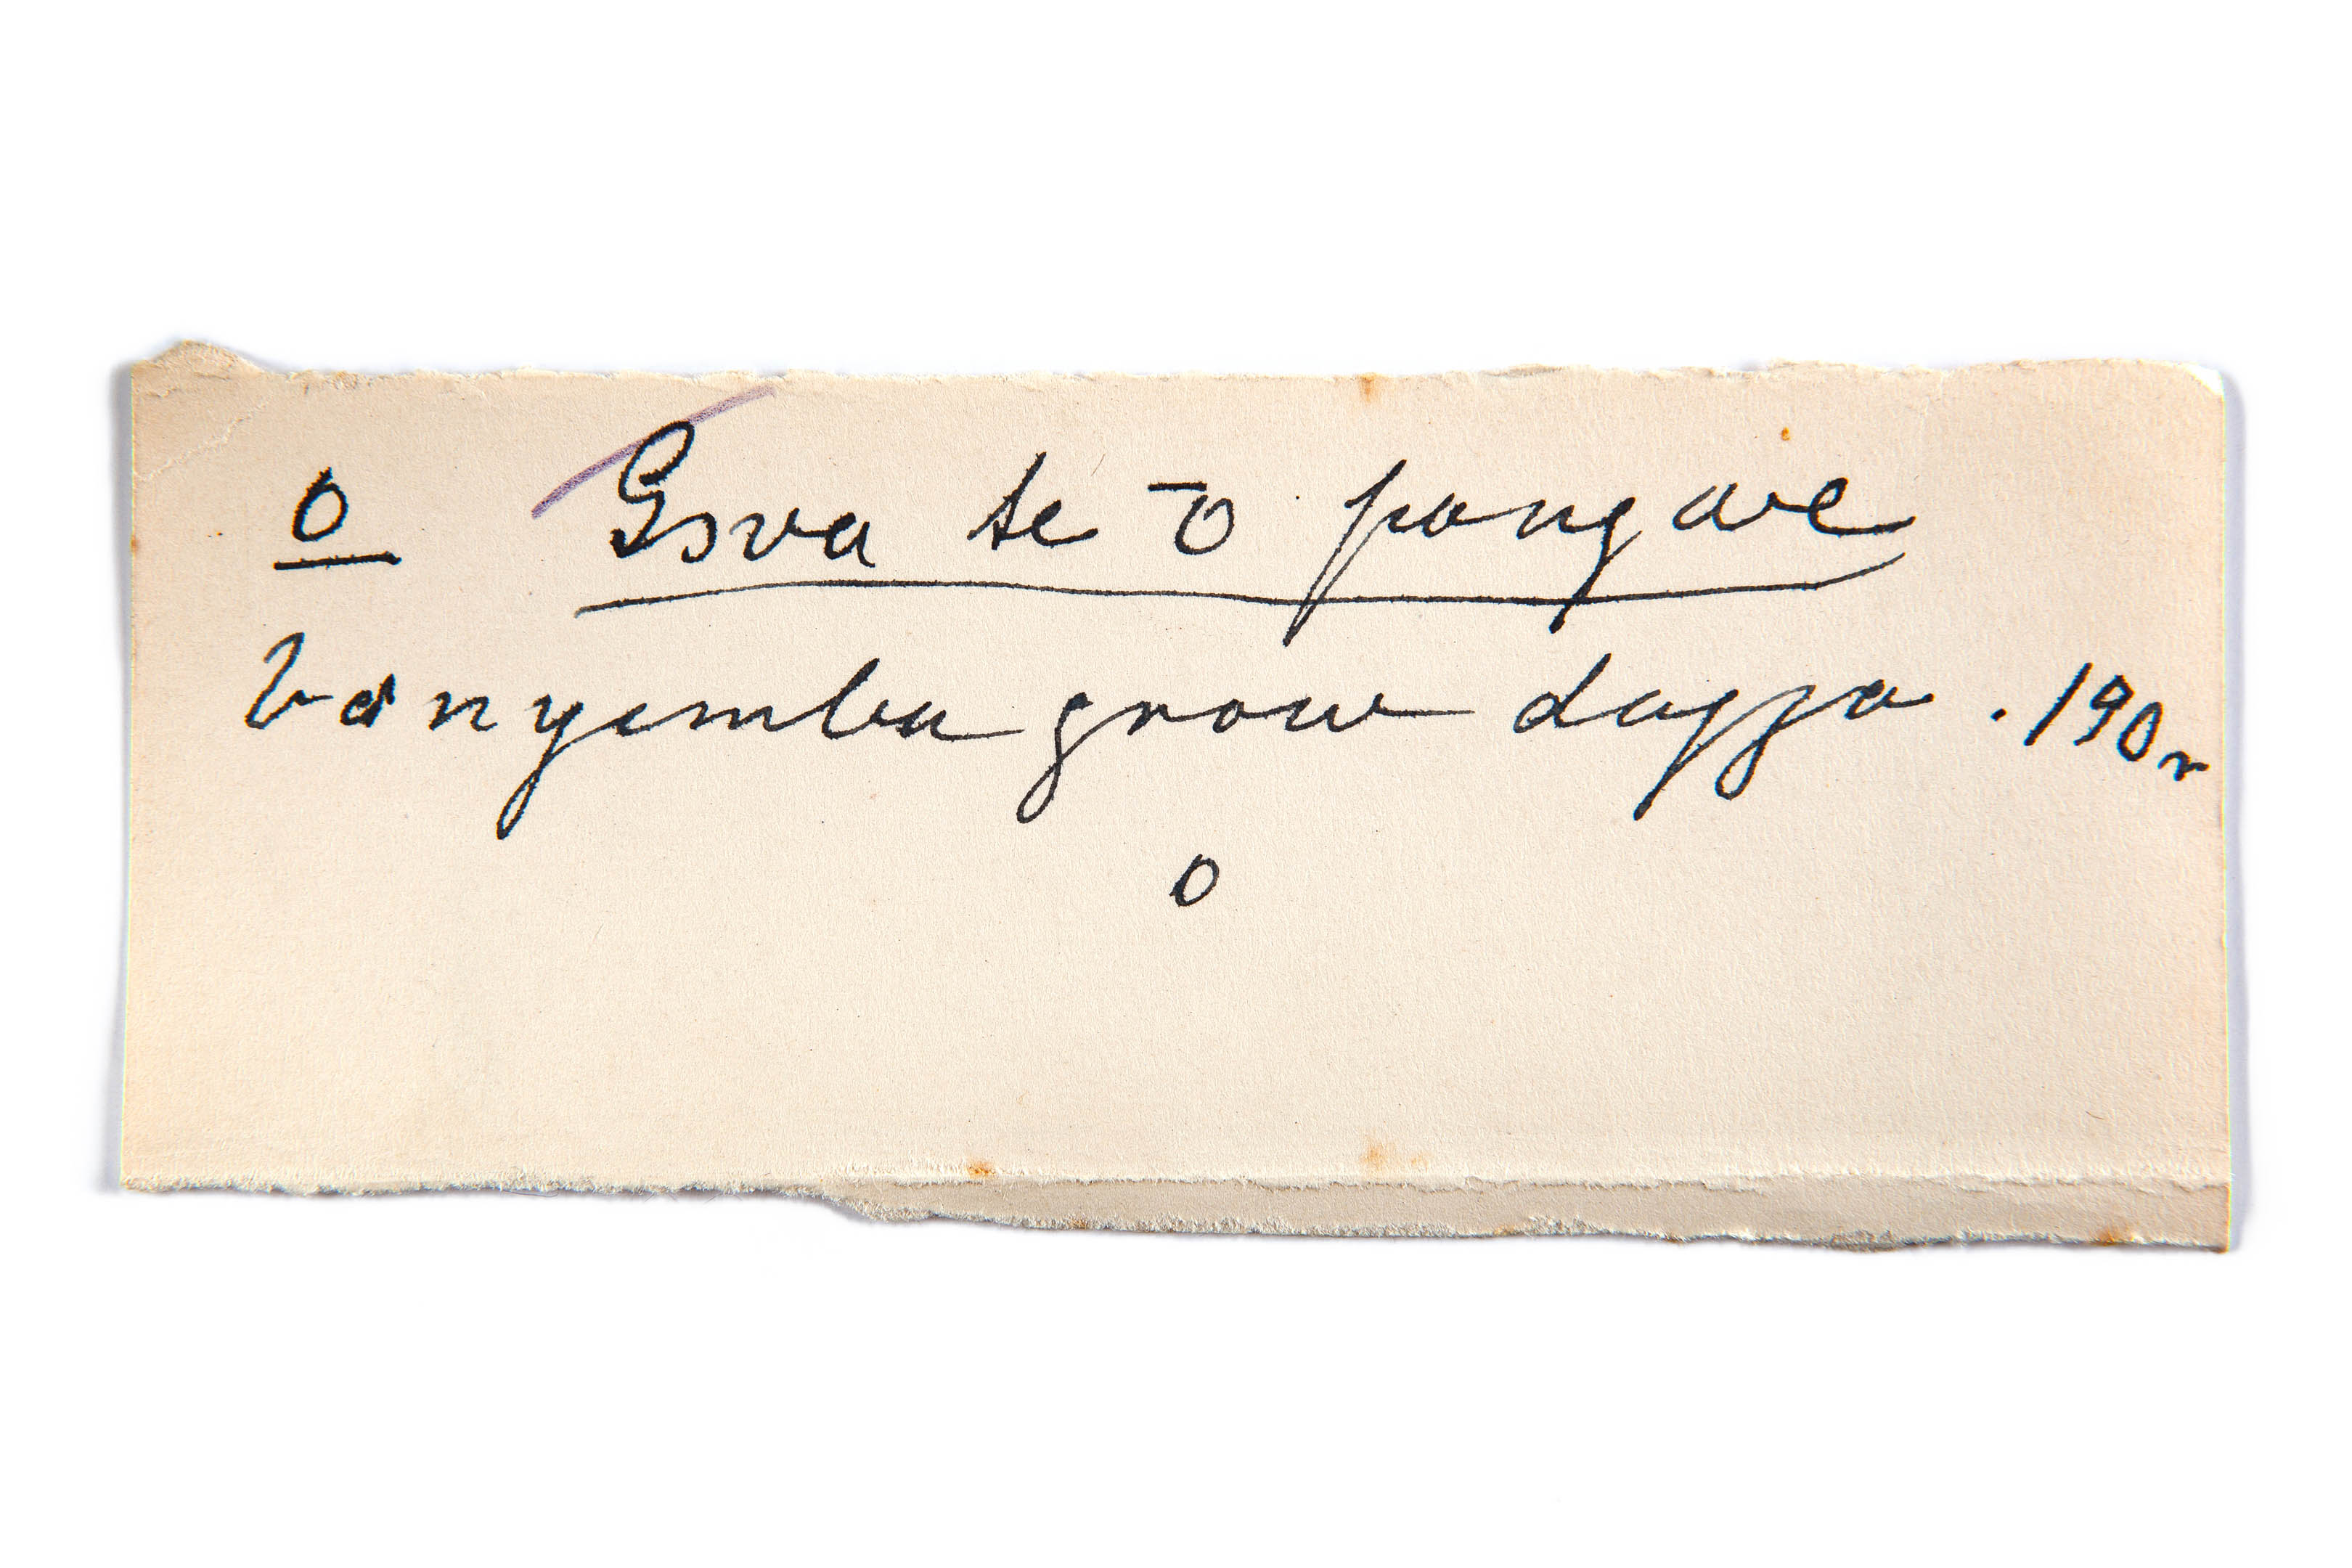 o Gova te ō pangwe
banyemba grow dagga . 190r
o